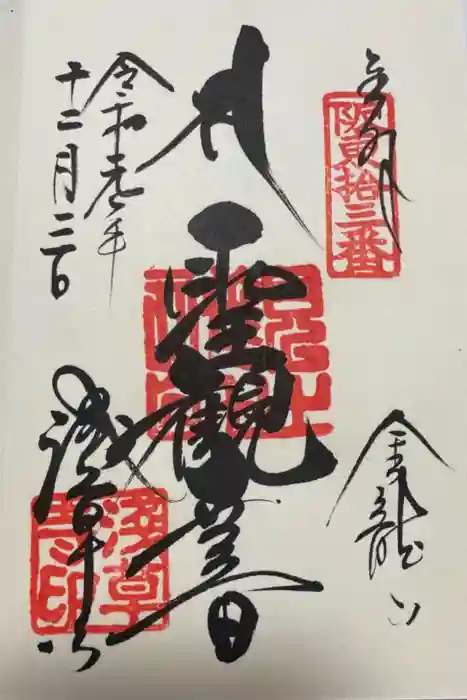 奉拝
阪東拾三番
金龍山
聖観世音
令和元年
十二月二日
浅草寺
浅草寺印